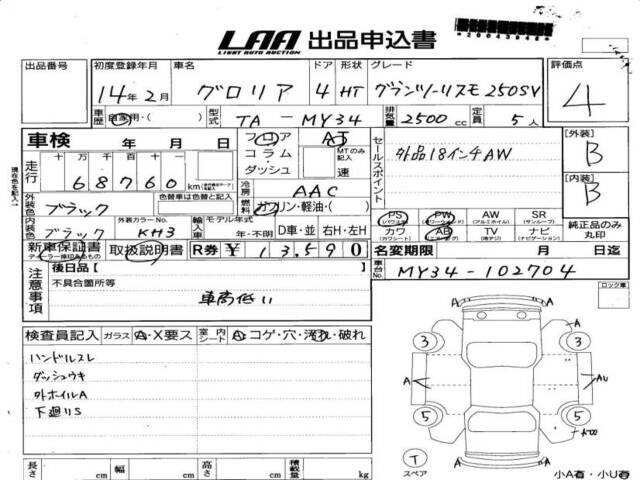 LAA 出品申込書
LIGHT AUTO AUCTION
出品番号
初度登録年月 車名 ドア 形状 グレード 評価点
14年2月 グロリア 4 HT グランツーリスモ250SV 4
車歴 自家用・( ) 型式 TA-MY34 排気量 2500cc 定員 5人
車検 年 月 日
フロア AT
コラム・
ダッシュ MTのみ記入 速
走行 十 万 千 百 十
68760 km
セールスポイント 外品18インチAW
[外装] B
[内装] B
冷房 AAC
燃料 ガソリン・軽油・( )
外装色 ブラック 色替車は色替と記入
内装色 ブラック 外装カラーNo. KH3
輸入車 モデル年式 年・不明 D車・並 右H・左H
PS (パワステ) PW (パワーウィンドウ) AW (アルミホイル) SR (サンルーフ)
カワ (カワシート) AB (エアバッグ) TV (地デジ) ナビ (ナビゲーション)
純正品のみ丸印
新車保証書 取扱説明書 R券 ¥13,590
名変期限 月 日迄
車台No. MY34-102704
現在色を記入
注意事項
後日品[ ]
不具合箇所等
車高低い
ロック車
検査員記入 ガラス A・X要ス 室内シート A・コゲ・穴・汚れ・破れ
ハンドルスレ
ダッシュウキ
外ホイルA
下廻りS
A A
3 3
A A AU
5 5
A A A
T
スペア
長さ cm 幅 cm 高さ cm 積載量 kg
小A有・小U有